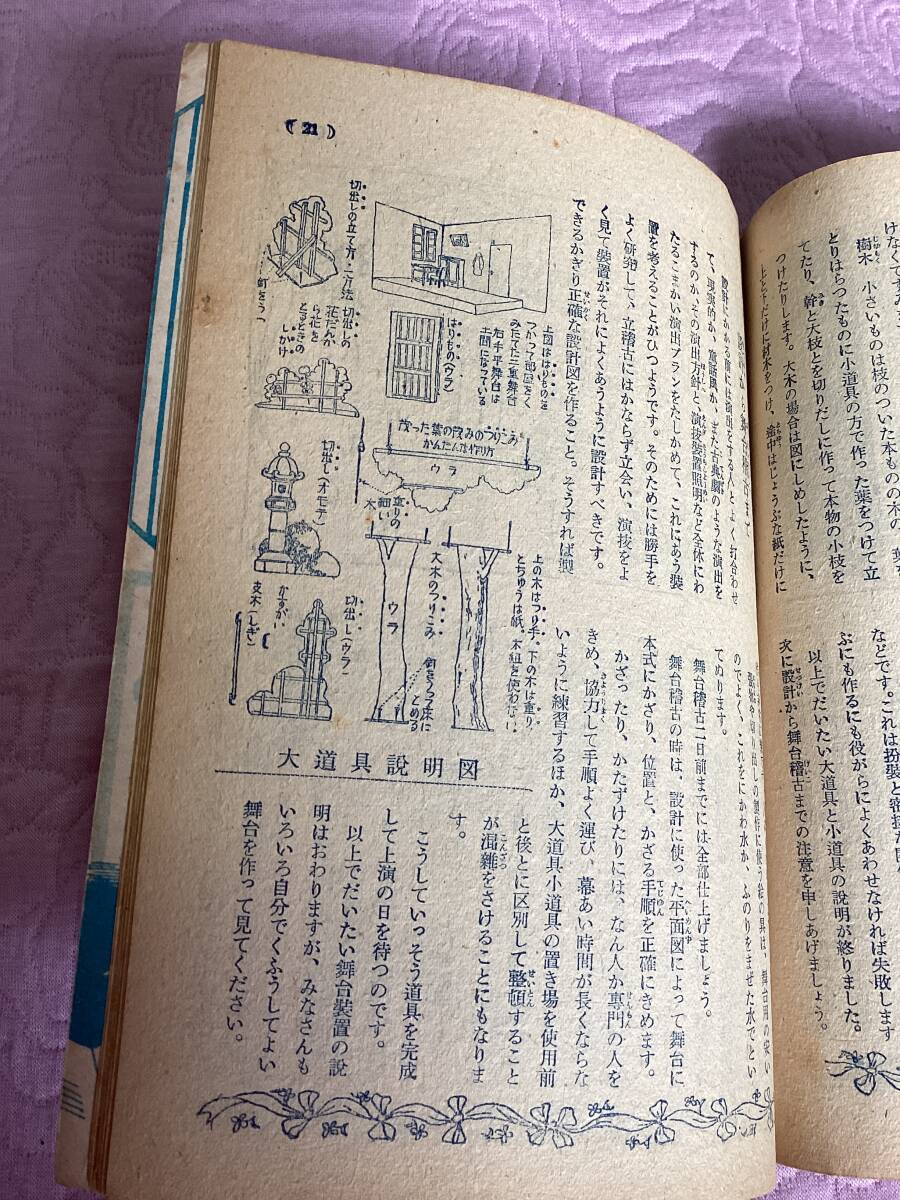 けなくてすみ
樹木　小さいものは枝のついた本ものの木の、葉を
とりはらつたものに小道具の方で作った葉をつけて立
てたり、幹と大枝とを切りだしに作って本物の小枝を
つけたりします。大木の場合は図にしめしたように、
上と下だけに材木をつけ、途中はじょうぶな紙だけに
などです。これは扮装と密接な
ぶにも作るにも役がらによくあわせなければ失敗します
以上でだいたい大道具と小道具の説明が終りました。
次に設計から舞台稽古までの注意を申しあげましょう。
（21）
設計にかかる前には演出をする人とよく打合わせ
て、現実的か、童話風か、また古典劇のような演出を
するのか、その演出方針と、演技装置照明など全体にわ
たるこまかい演出プランをたしかめて、これにあう装
置を考えることがひつようです。そのためには勝手を
よく研究して、立稽古にはかならず立会い、演技をよ
く見て装置がそれによくあうように設計すべきです。
できるかぎり正確な設計図を作ること。そうすれば製
上図ははりものを
つかって部屋をく
みたてた二重舞台
右手平舞台は
土間になっている
はりもの（ウラ）
切出しの立て方・二方法
釘をうつ
切出しの
花だんか
ら花を
とるときの
しかけ
茂った葉の茂みのつりこみを
かんたんな作り方
ウラ
重りの
細い
木
切出し（オモテ）
上の木はつり手、下の木は重り
とちゅうは紙。木紐を使わない
大木のつりこみ
ウラ
釘をうつ床に
とめる
切出し（ウラ）
かすがい
支木（しぎ）
大道具説明図
のでよく、これをにかわ水か、ふのりをまぜた水でとい
てぬります。
舞台稽古二日前までには全部仕上げましょう。
舞台稽古の時は、設計に使った平面図によって舞台に
本式にかざり、位置と、かざる手順を正確にきめます。
かざったり、かたずけたりには、なん人か専門の人を
きめ、協力して手順よく運び、幕あい時間が長くならな
いように練習するほか、大道具小道具の置き場を使用前
と後とに区別して整頓すること
が混雑をさけることにもなりま
す。
こうしていっそう道具を完成
して上演の日を待つのです。
以上でだいたい舞台装置の説
明はおわりますが、みなさんも
いろいろ自分でくふうしてよい
舞台を作って見てください。